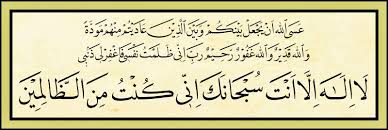 عَسَى اللّٰهُ اَنْ يَجْعَلَ بَيْنَكُمْ وَبَيْنَ الَّذِينَ عَادَيْتُمْ مِنْهُمْ مَوَدَّةً
وَاللّٰهُ قَدِيرٌ وَاللّٰهُ غَفُورٌ رَحِيمٌ رَبِّ اِنِّى ظَلَمْتُ نَفْسِى فَاغْفِرْلِى ذَنْبِى
لَا اِلٰهَ اِلَّا اَنْتَ سُبْحَانَكَ اِنِّى كُنْتُ مِنَ الظَّالِمِينَ